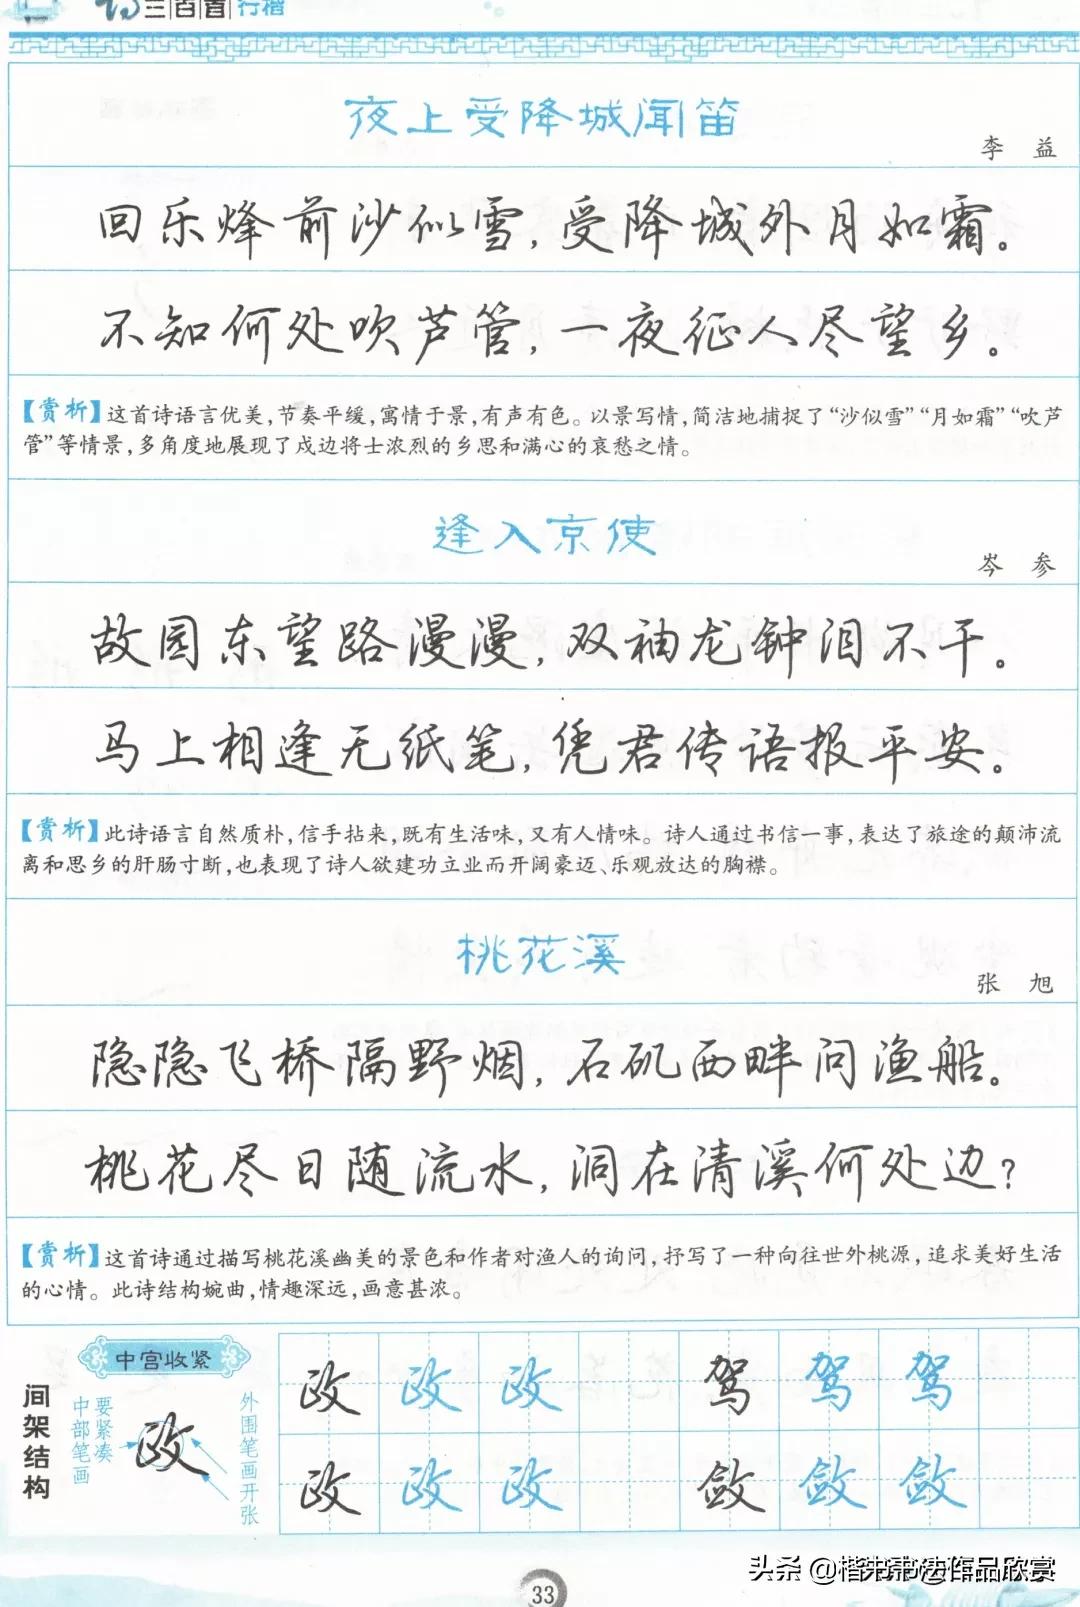 诗三百首 行楷
夜上受降城闻笛
李 益
回乐烽前沙似雪,受降城外月如霜。
不知何处吹芦管,一夜征人尽望乡。
【赏析】这首诗语言优美,节奏平缓,寓情于景,有声有色。以景写情,简洁地捕捉了“沙似雪”“月如霜”“吹芦
管”等情景,多角度地展现了戍边将士浓烈的乡思和满心的哀愁之情。
逢入京使
岑 参
故园东望路漫漫,双袖龙钟泪不干。
马上相逢无纸笔,凭君传语报平安。
【赏析】此诗语言自然质朴,信手拈来,既有生活味,又有人情味。诗人通过书信一事,表达了旅途的颠沛流
离和思乡的肝肠寸断,也表现了诗人欲建功立业而开阔豪迈、乐观放达的胸襟。
桃花溪
张 旭
隐隐飞桥隔野烟,石矶西畔问渔船。
桃花尽日随流水,洞在清溪何处边?
【赏析】这首诗通过描写桃花溪幽美的景色和作者对渔人的询问,抒写了一种向往世外桃源,追求美好生活
的心情。此诗结构婉曲,情趣深远,画意甚浓。
间架结构
中宫收紧
中部笔画
要紧凑
政
外围笔画开张
政 政 政 驾 驾 驾
政 政 政 敛 敛 敛
33
头条 @楷书书法作品欣赏